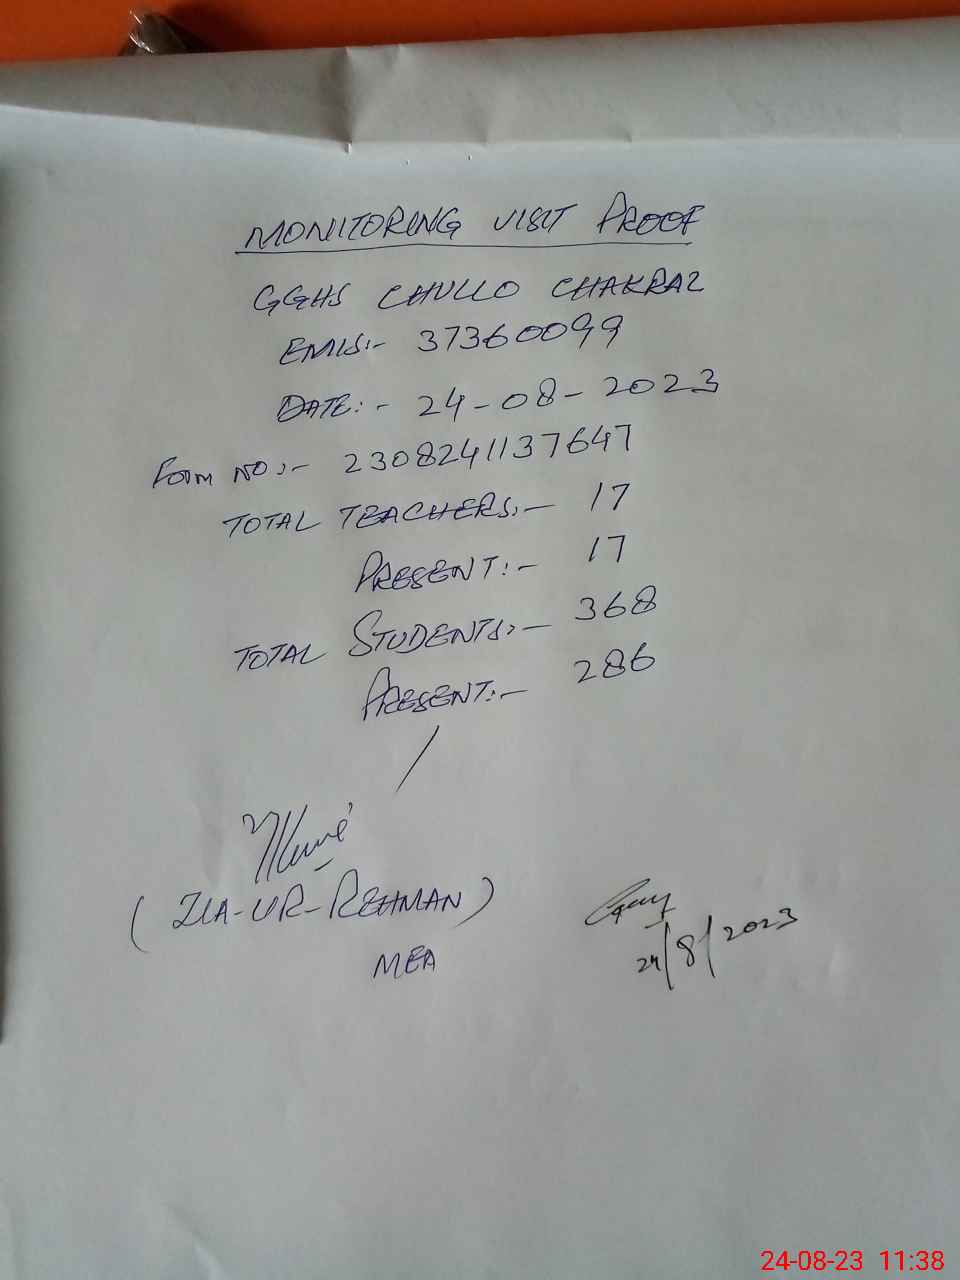 MONITORING VISIT PROOF
GGHS CHULLO CHAKRAZ
EMIS:- 37360099
DATE:- 24-08-2023
Form NO:- 2308241137647
TOTAL TEACHERS:- 17
PRESENT:- 17
TOTAL STUDENTS:- 368
PRESENT:- 286
(ZIA-UR-REHMAN)
MEA
24/8/2023
24-08-23 11:38